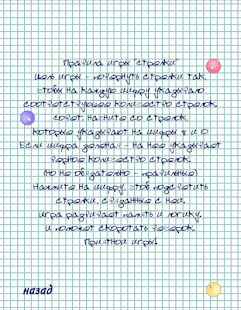 Правила игры "Стрелки"
Цель игры - повернуть стрелки так,
чтобы на каждую цифру указывало
соответствующее количество стрелок.
Совет: начните со стрелок,
которые указывают на цифры 8 и 0
Если цифра зеленая - на нее указывает
верное количество стрелок.
(но не обязательно - правильные)
Нажмите на цифру, чтоб подсветить
стрелки, связанные с ней.
Игра развивает память и логику,
и поможет скоротать вечерок.
Приятной игры!
назад